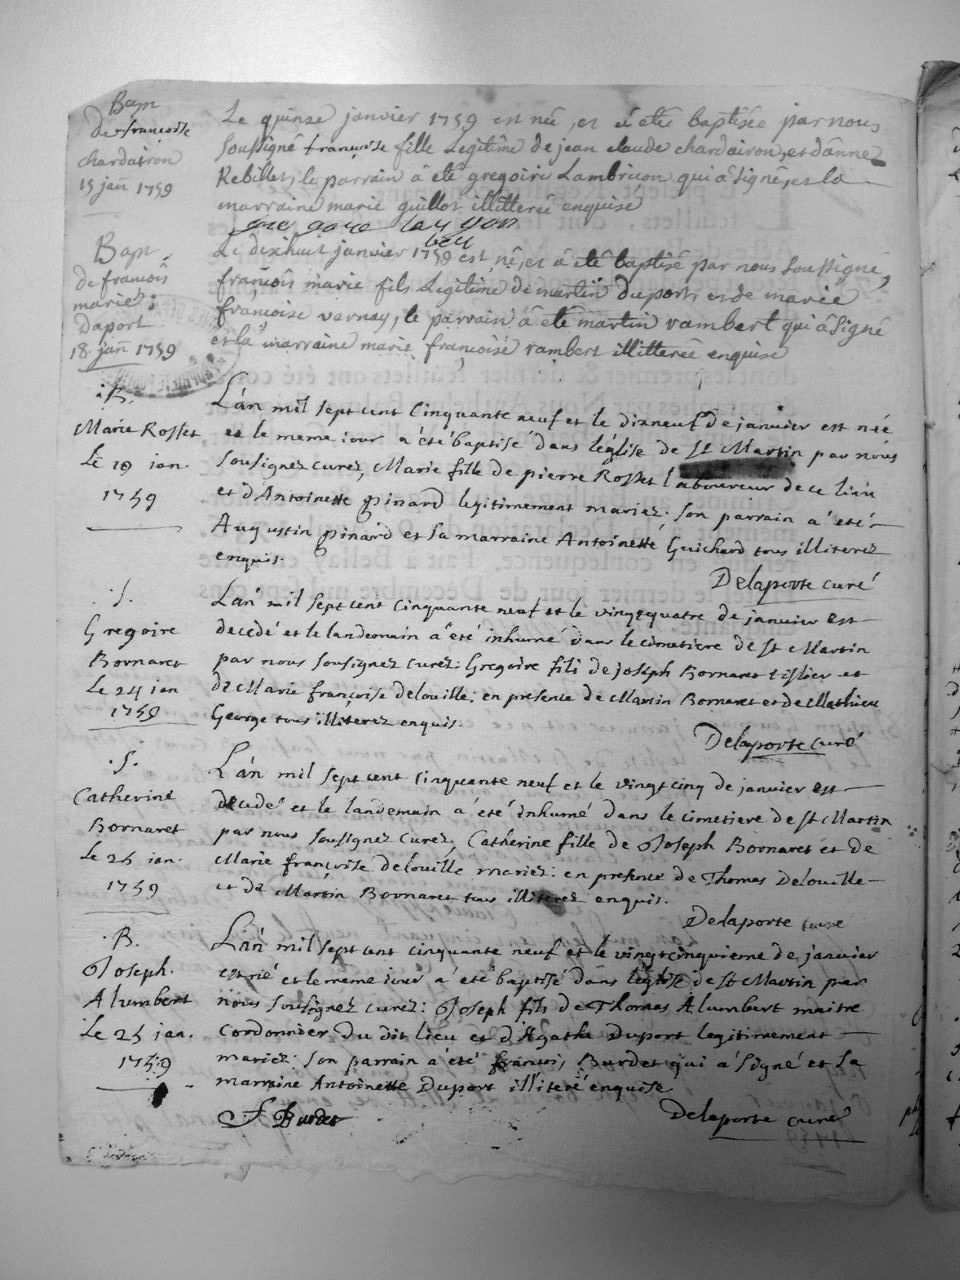 Bap.
de françoise
chardairon
15 jan 1759
Le quinze janvier 1759 est née, et a été baptisée par nous
soussigné françoise fille Legitime de jean claude chardairon, et d'anne
Rebillet, le parrain à été gregoire Lambrion qui a signé, et la
marraine marie guillot illitterée enquise
Bap.
de françois
marie
duport
18 jan 1759
Le dixhuit janvier 1759 est né, et a été baptisé par nous soussigné,
françois marie fils Legitime de martin duport et de marie
françoise vernay, le parrain à été martin rambert qui a signé
et la marraine marie françoise rambert illitterée enquise
B.
Marie Rosset
Le 19 jan.
1759
L'an mil sept cent cinquante neuf et le dixneuf de janvier est née
et le meme iour a été baptisé dans l'église de St Martin par nous
sousignez curez, Marie fille de pierre Rosset laboureur de ce lieu
et d'Antoinette pinard legitimement mariez. son parrain a été
Augustin pinard et sa marraine Antoinette Guichard tous illiterez
enquis.
Delaporte curé
S.
Gregoire
Bornaret
Le 24 jan
1759
L'an mil sept cent cinquante neuf et le vingtquatre de janvier est
decedé et le landemain a été inhumé dans le cimetiere de St Martin
par nous sousignez curez: Gregoire fils de joseph Bornaret tissier et
de Marie françoise delouille: en presence de Martin Bornaret et de Mathieu
George tous illiterez enquis.
Delaporte curé
S.
Catherine
Bornaret
Le 25 jan.
1759
L'an mil sept cent cinquante neuf et le vingtcinq de janvier est
decedé et le landemain a été inhumé dans le cimetiere de St Martin
par nous sousignez curez, Catherine fille de Joseph Bornaret et de
Marie françoise delouille mariez: en presence de Thomas Delouille
et de Martin Bornaret tous illiterez enquis.
Delaporte curé
B.
Joseph.
Alumbert
Le 25 jan.
1759
L'an mil sept cent cinquante neuf et le vingtcinquieme de janvier
est né et le meme iour a été baptisé dans l'église de St Martin par
nous sousignez curez: Joseph fils de Thomas Alumbert maitre
Cordonnier du dit lieu et d'Agathe Duport legitimement
mariez. son parrain a été françois Burdet qui a signé et sa
marraine Antoinette Duport illiteré enquise
F Burdet
Delaporte curé